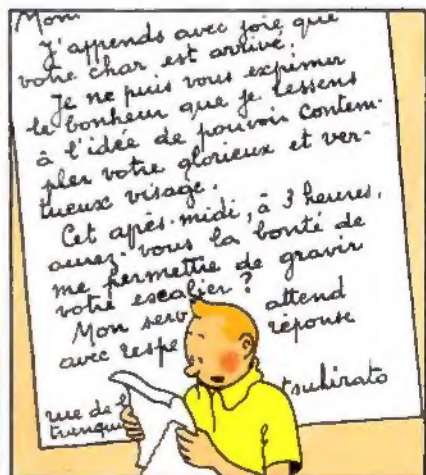 Mon
J'apprends avec joie que
votre char est arrivé.
Je ne puis vous exprimer
le bonheur que je ressens
à l'idée de pouvoir contem-
pler votre glorieux et ver-
tueux visage.
Cet après-midi, à 3 heures,
aurez-vous la bonté de
me permettre de gravir
votre escalier ?
Mon serv attend
avec respe réponse
tsuhirato
rue de l
tranqui